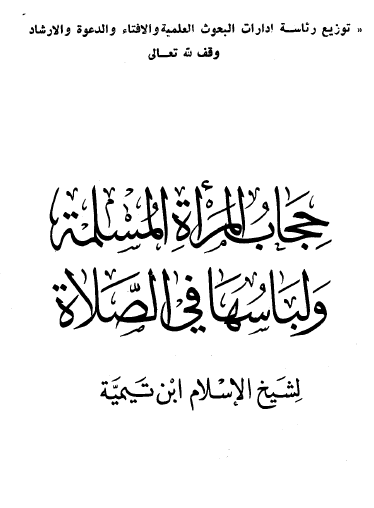 « توزيع رئاسة ادارات البحوث العلمية والافتاء والدعوة والارشاد
وقف لله تعالى
حِجَابُ المَرْأَةِ المُسْلِمَة
وَلِبَاسُهَا فِي الصَّلَاة
لِشَيخ الإِسْلَام ابْن تَيميَّة